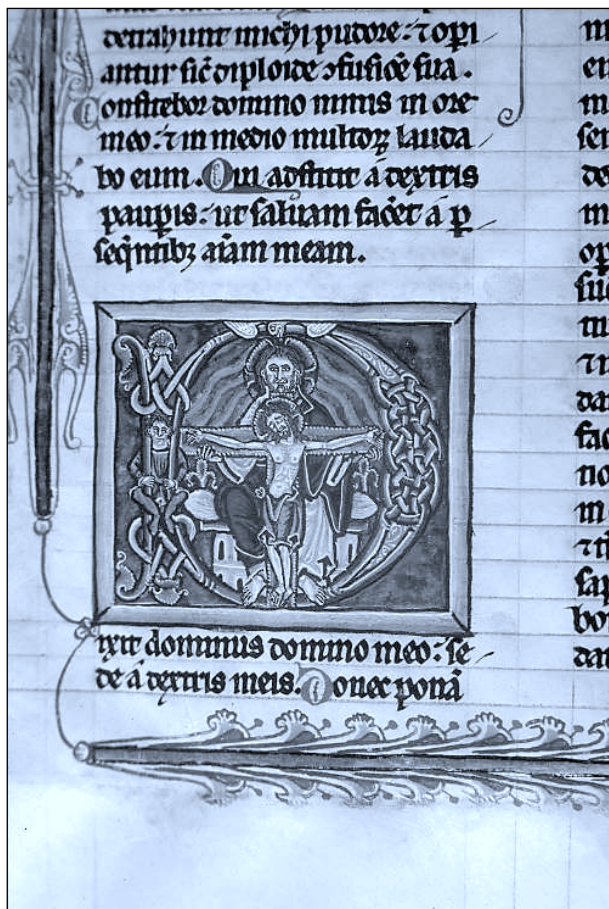 detrahunt michi pudore: ⁊ operi
antur sic̄ diploide ↄfusiōe sua.
Confitebor domino nimis in ore
meo: ⁊ in medio multoꝝ lauda
bo eum. Qui adstitit a dextris
paupis: ut saluam facet a p̱
seq̄ntibꝫ aīam meam.
D
ixit dominus domino meo: se
de a dextris meis. Donec ponā
m
en
m
sei
de
m
op
suc
⁊ i
da
fac
no
m
sap
bo
dat